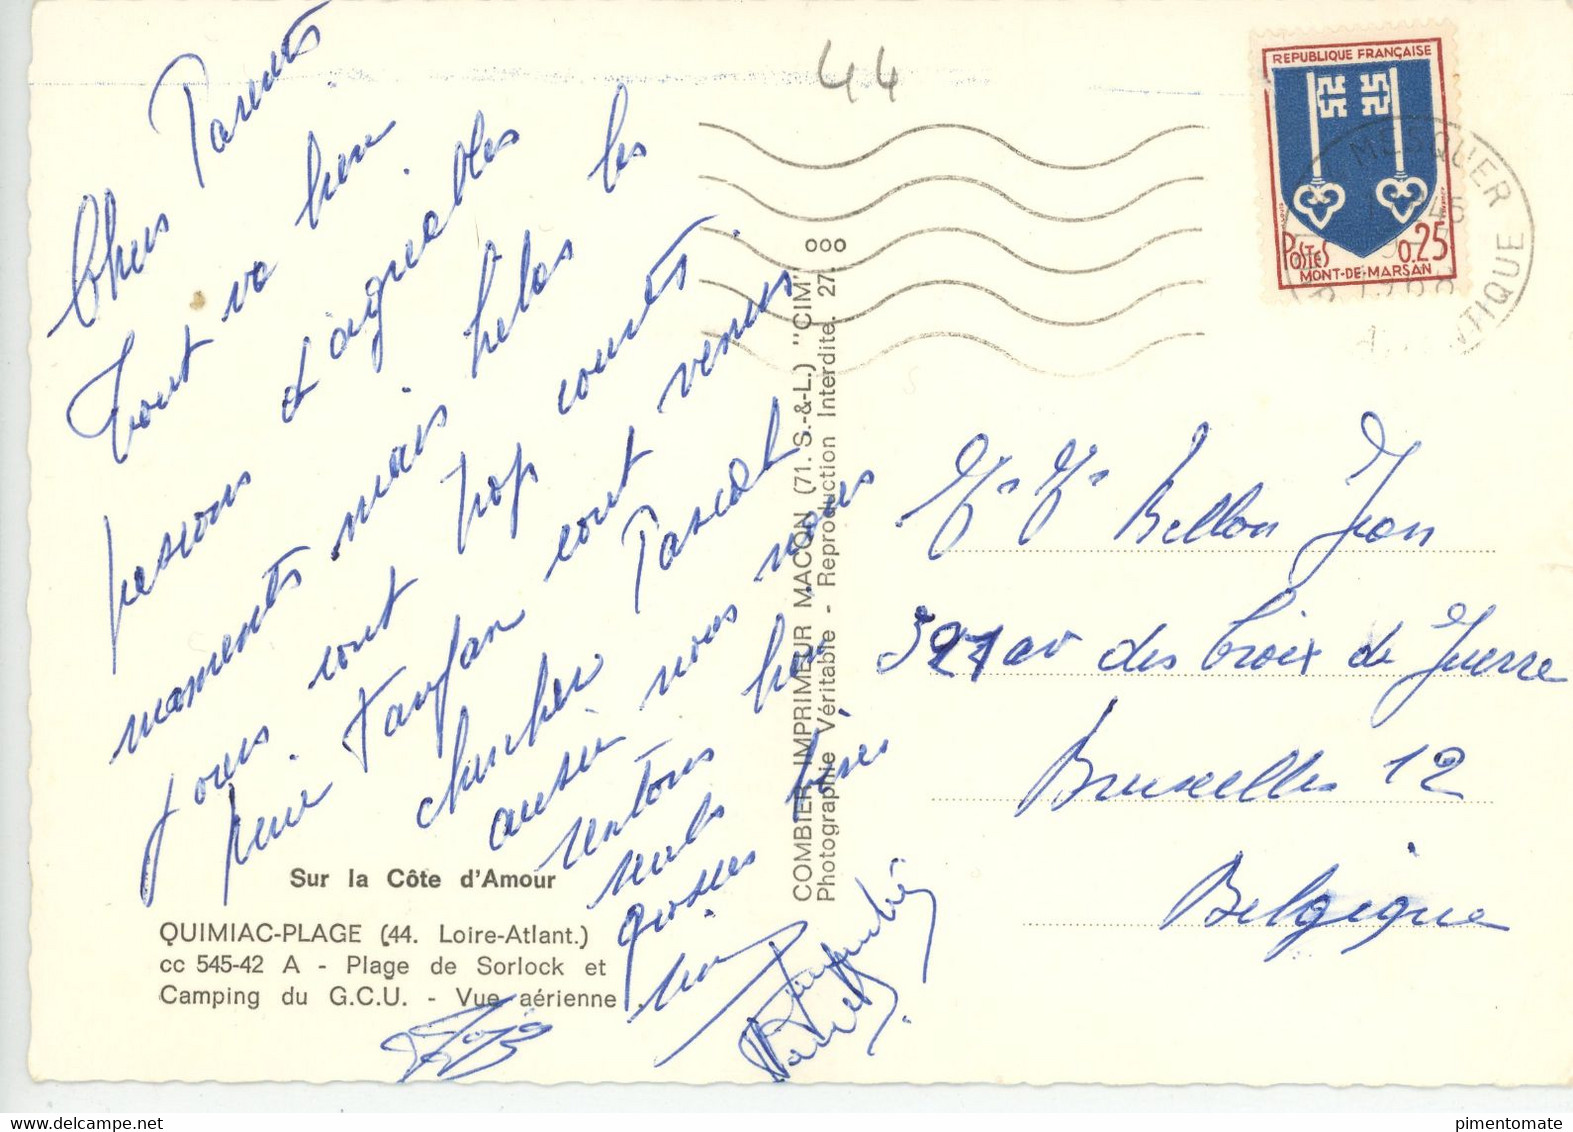 Chers Parents
Tout va bien
passons d'agreables
moments mais hélas les
jours sont trop courts.
Fanfan sont venus
chercher Pascal
aussi nous nous
rentons bien
seuls
grosses bises
44
REPUBLIQUE FRANÇAISE
POSTES 0.25
MONT-DE-MARSAN
MESQUER
Mr Me Bellon Jean
av des Croix de Guerre
Bruxelles 12
Belgique
COMBIER IMPRIMEUR MACON (71. S.-&-L.) "CIM"
Photographie Véritable - Reproduction Interdite. 27. 000
Sur la Côte d'Amour
QUIMIAC-PLAGE (44. Loire-Atlant.)
cc 545-42 A - Plage de Sorlock et
Camping du G.C.U. - Vue aérienne
pimentomate